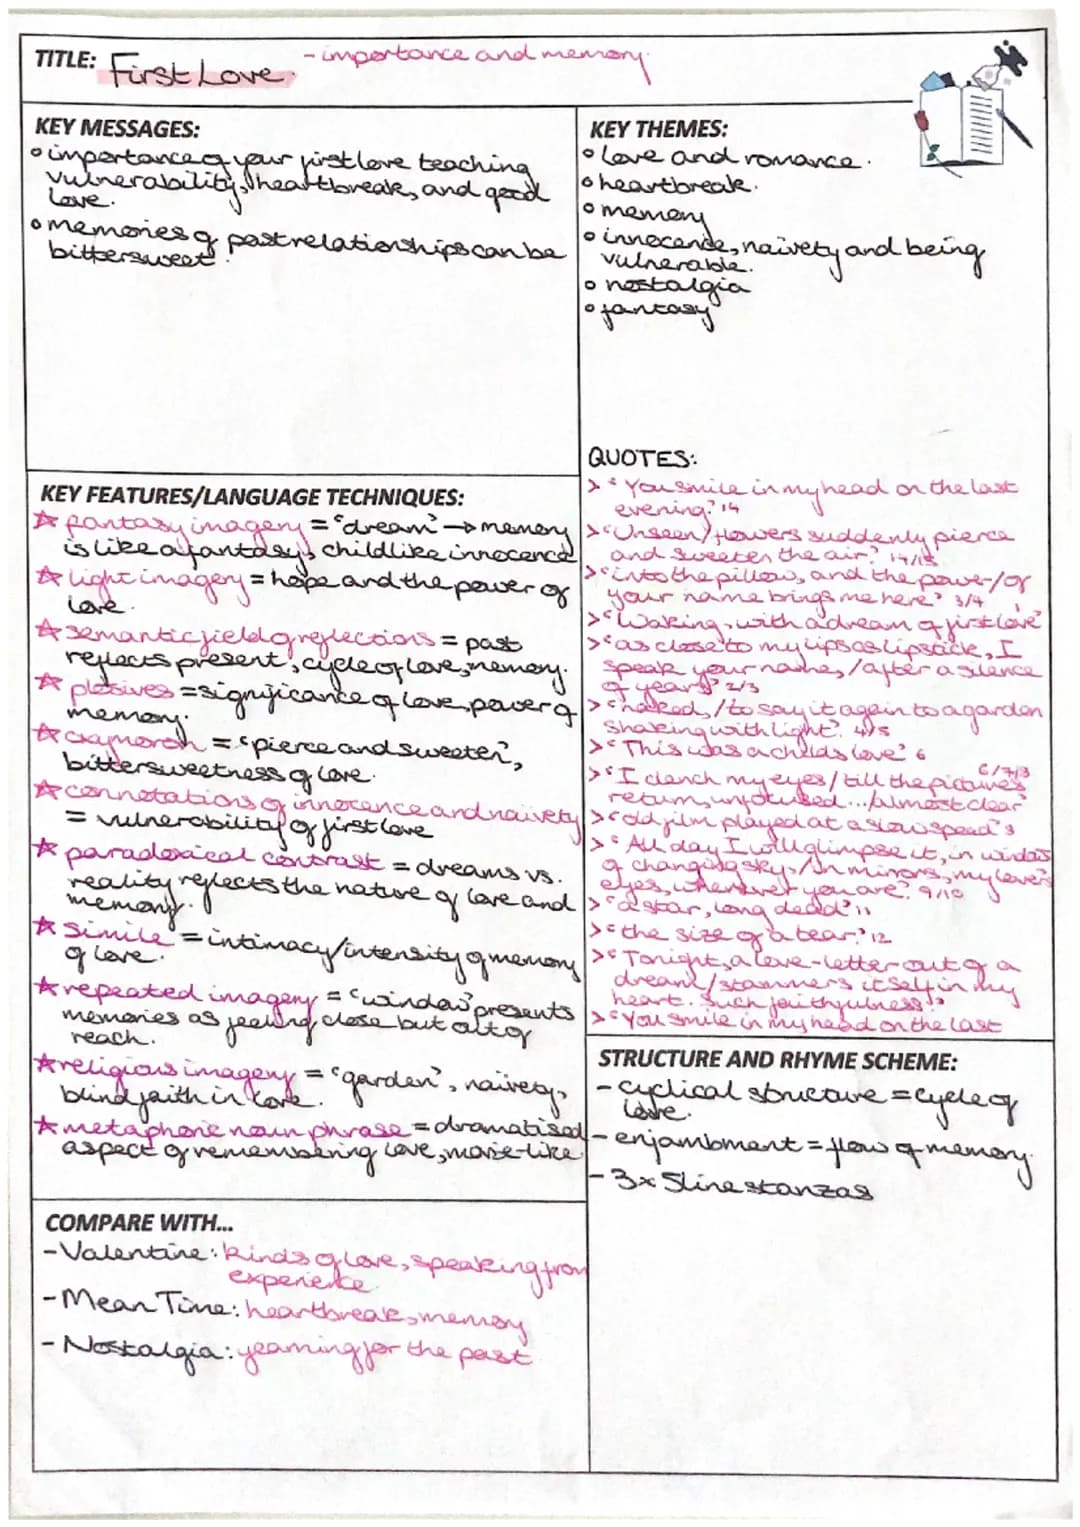 TITLE: First Love. - importance and memory.
KEY MESSAGES:
° importance of your first love teaching
vulnerability, heartbreak, and good
love.
° memories of past relationships can be
bittersweet.
KEY THEMES:
° love and romance.
° heartbreak.
° memory
° innocence, naivety and being
vulnerable.
° nostalgia
° fantasy
KEY FEATURES/LANGUAGE TECHNIQUES:
☆ fantasy imagery = 'dream' → memory
is like a fantasy, childlike innocence
☆ light imagery = hope and the power of
love.
☆ semantic field of reflections = past
reflects present, cycle of love, memory.
☆ plosives = significance of love, power of
memory.
☆ oxymoron = 'pierce and sweeten',
bittersweetness of love.
☆ connotations of innocence and naivety
= vulnerability of first love
☆ paradoxical contrast = dreams vs.
reality reflects the nature of love and
memory.
☆ simile = intimacy/intensity of memory
of love.
☆ repeated imagery = 'window' presents
memories as feeling close but out of
reach.
☆ religious imagery = 'garden', naivety,
blind faith in love.
☆ metaphoric noun phrase = dramatised
aspect of remembering love, movie-like
QUOTES:
> 'You smile in my head on the last
evening.' 14
> 'Unseen/flowers suddenly pierce
and sweeten the air.' 14/15
> 'into the pillow, and the power/of
your name brings me here' 3/4
> 'Waking, with a dream of first love' 1
> 'as close to my lips as lipstick, I
speak your name,/after a silence
of years' 2/3
> 'naked,/to say it again to a garden
shaking with light.' 4/5
> 'This was a childs love' 6
> 'I clench my eyes/till the pictures 6/7/8
return, unfocused.../almost clear'
> 'old film played at a slow speed' 8
> 'All day I will glimpse it, in windows
of changing sky,/In mirrors, my lover's
eyes, wherever you are.' 9/10
> 'a star, long dead' 11
> 'the size of a tear.' 12
> 'Tonight, a love-letter out of a
dream/stammers itself in my
heart. Such faithfulness.'
> 'You smile in my head on the last
STRUCTURE AND RHYME SCHEME:
- cyclical structure = cycle of
love.
- enjambment = flow of memory.
- 3x 5line stanzas
COMPARE WITH...
- Valentine: kinds of love, speaking from
experience
- Mean Time: heartbreak, memory
- Nostalgia: yearning for the past